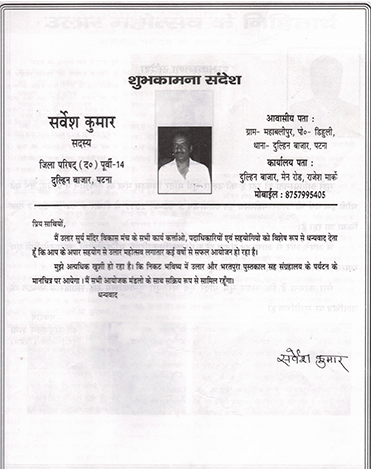 शुभकामना संदेश
सर्वेश कुमार
सदस्य
जिला परिषद् (द०) पूर्वी-14
दुल्हिन बाजार, पटना
आवासीय पता :
ग्राम- महाबलीपुर, पो०- डिहुली,
थाना- दुल्हिन बाजार, पटना
कार्यालय पता :
दुल्हिन बाजार, मेन रोड, राजेश मार्क
मोबाईल : 8757995405
प्रिय साथियों,
मैं उलार सुर्य मंदिर विकास मंच के सभी कार्य कर्त्ताओ, पदाधिकारियों एवं सहयोगियो को विशेष रूप से धन्यवाद देता
हूँ कि आप के अपार सहयोग से उलार महोत्सव लगातार कई वर्षो से सफल आयोजन हो रहा है।
मुझे अत्यधिक खुशी हो रहा है। कि निकट भविष्य में उलार और भरतपुरा पुस्तकाल सह संग्रहालय के पर्यटन के
मानचित्र पर आयेगा। मैं सभी आयोजक मंडलो के साथ सक्रिय रूप से सामिल रहुँगा।
धन्यवाद
सर्वेश कुमार